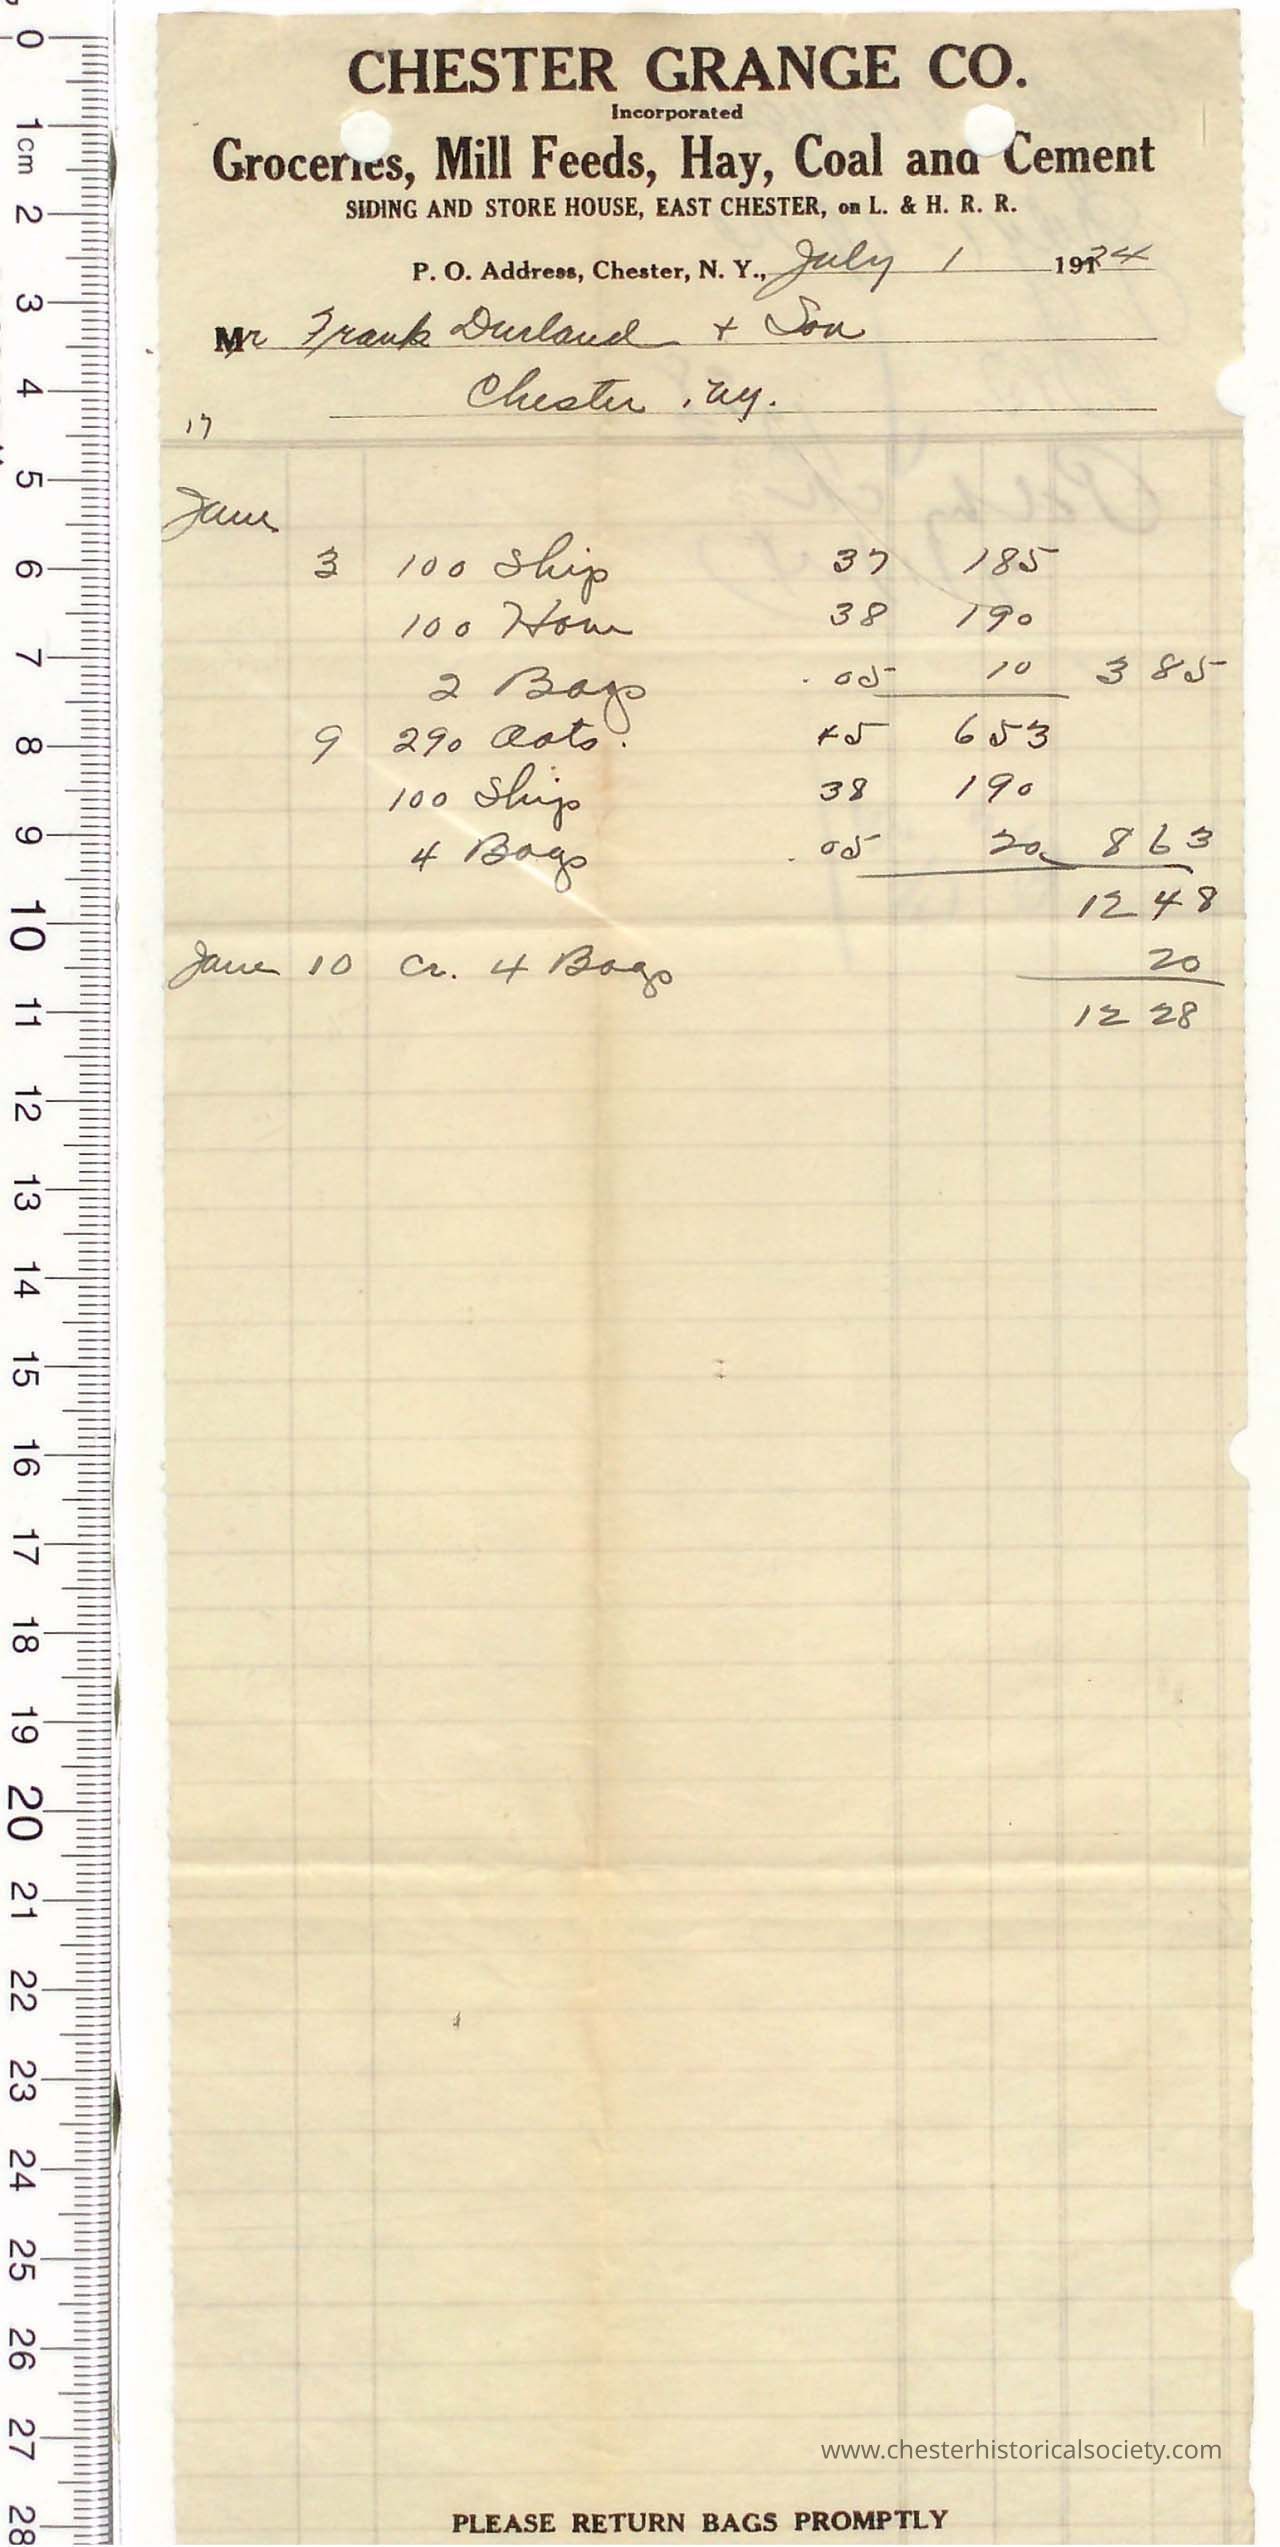 CHESTER GRANGE CO.
Incorporated
Groceries, Mill Feeds, Hay, Coal and Cement
SIDING AND STORE HOUSE, EAST CHESTER, on L. & H. R. R.
P. O. Address, Chester, N. Y., July 1 1924
Mr Frank Durland + Son
Chester, NY.
17
June
3 100 Ship 37 185
100 Hom 38 190
2 Bags .05 10 3 85
9 290 Oats. 45 653
100 Ship 38 190
4 Bags .05 20 8 63
12 48
June 10 Cr. 4 Bags 20
12 28
www.chesterhistoricalsociety.com
PLEASE RETURN BAGS PROMPTLY
0
1cm
2
3
4
5
6
7
8
9
10
11
12
13
14
15
16
17
18
19
20
21
22
23
24
25
26
27
28